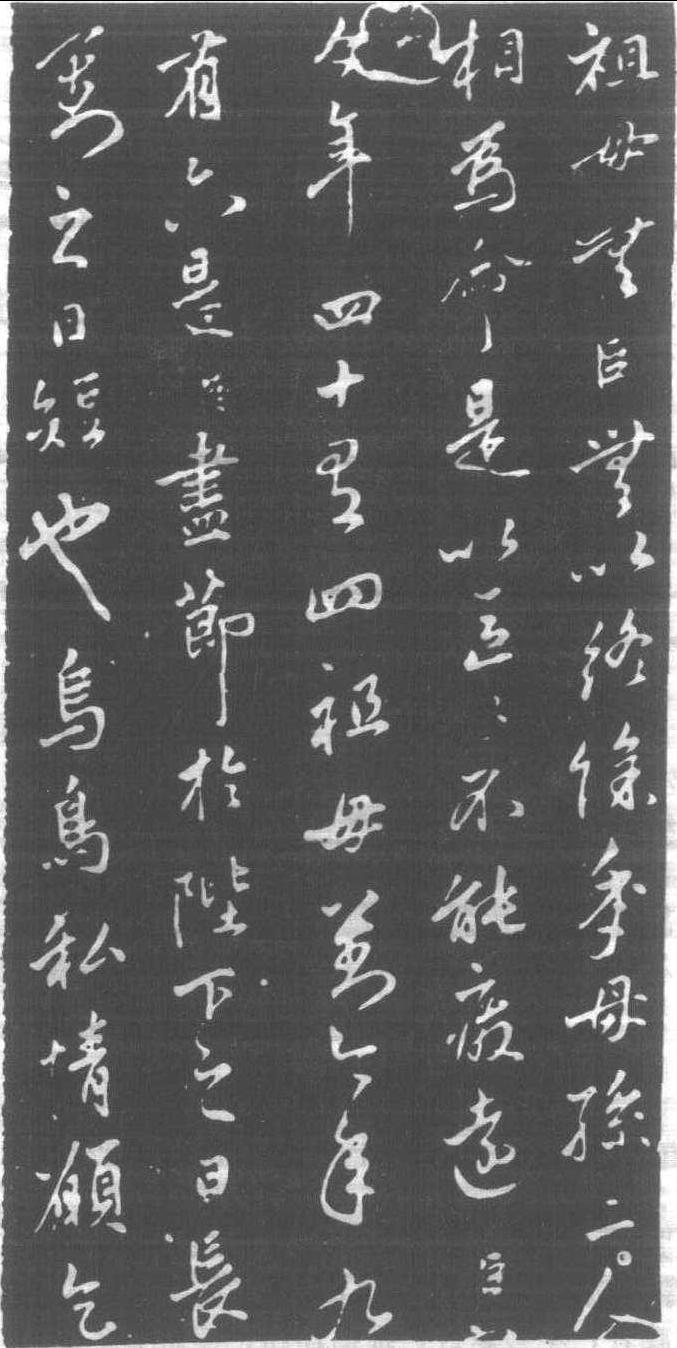 祖母無臣無以終餘年母孫二人
相為命是以區〻不能廢遠臣
今年四十有四祖母劉今年九
有六是臣盡節於陛下之日長
劉之日短也烏鳥私情願乞